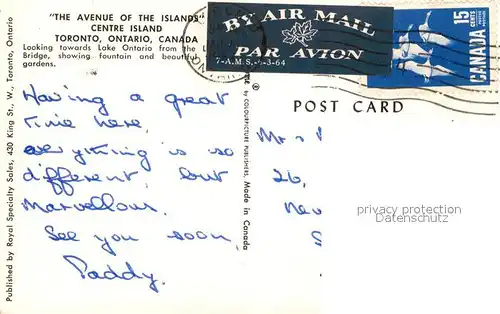 "THE AVENUE OF THE ISLANDS"
CENTRE ISLAND
TORONTO, ONTARIO, CANADA
Looking towards Lake Ontario from the L
Bridge, showing fountain and beautiful
gardens.
BY AIR MAIL
PAR AVION
7-A.M.S.-6-3-64
15
CENTS
CANADA
POST CARD
Having a great
time here,
everything is so
different, but
marvellous.
See you soon,
Paddy.
Mr
26,
New
S
privacy protection
Datenschutz
Published by Royal Specialty Sales, 430 King St., W., Toronto, Ontario
by COLOURPICTURE PUBLISHERS, Made in Canada
®